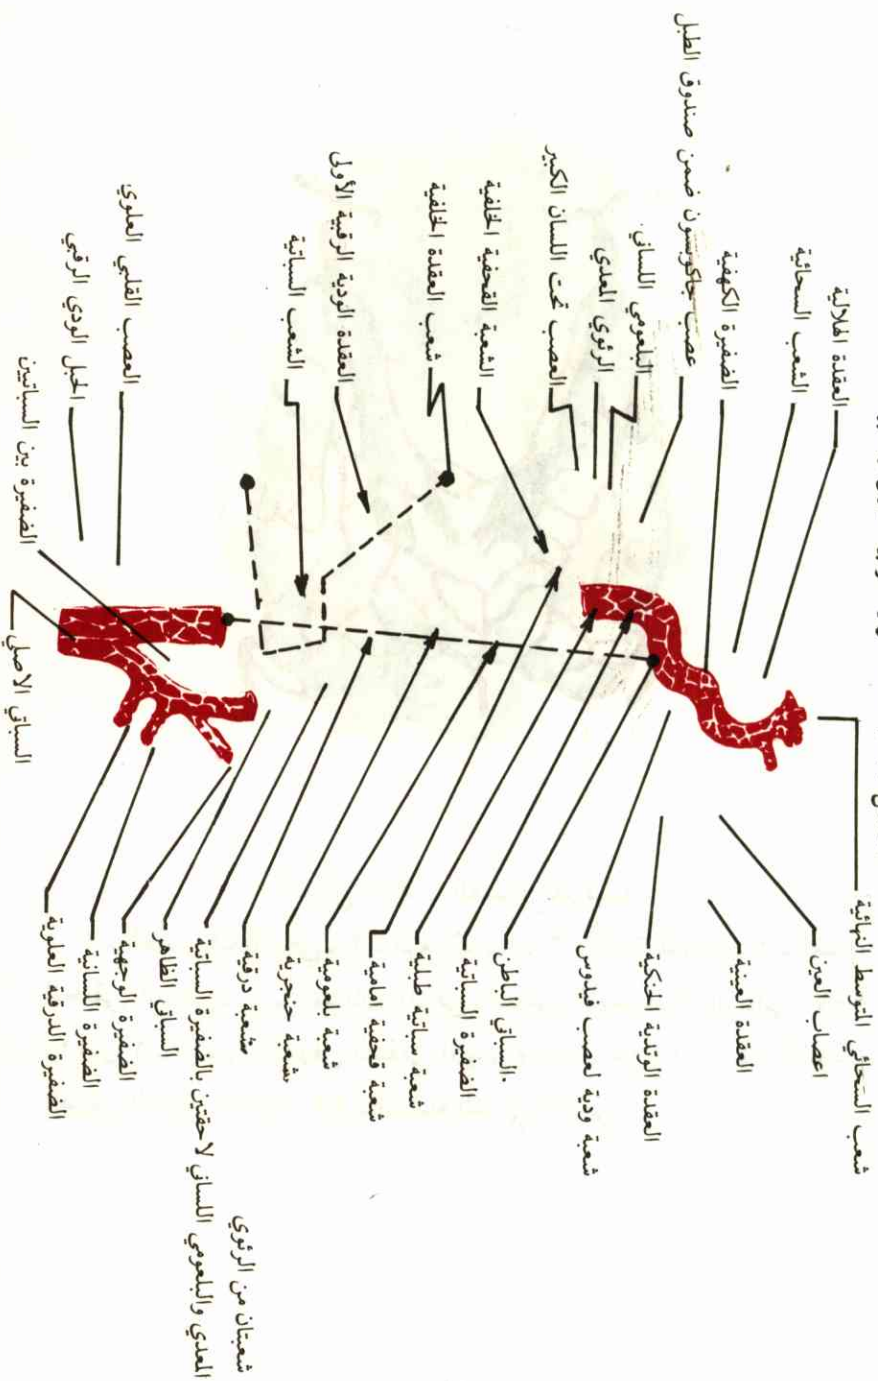 العقدة الهلالية
الشعب السحائية
الضفيرة الكهفية
عصب جاكوبسون ضمن صندوق الطبل
البلعومي اللساني
الرئوي المعدي
العصب تحت اللسان الكبير
الشعبة القحفية الخلفية
شعب العقدة الخلفية
العقدة الودية الرقبية الأولى
الشعب السباتية
العصب القلبي العلوي
الحبل الودي الرقبي
الضفيرة بين السباتيين
السباتي الاصلي
شعب السحائي المتوسط النهائية
اعصاب العين
العقدة العينية
العقدة الوتدية الحنكية
شعبة ودية لعصب فيدوس
السباتي الباطن
الضفيرة السباتية
شعبة سباتية طبلية
شعبة قحفية امامية
شعبة بلعومية
شعبة حنجرية
شعبة درقية
شعبتان من الرئوي
المعدي والبلعومي اللساني لاحقتين بالضفيرة السباتية
السباتي الظاهر
الضفيرة الوجهية
الضفيرة اللسانية
الضفيرة الدرقية العلوية